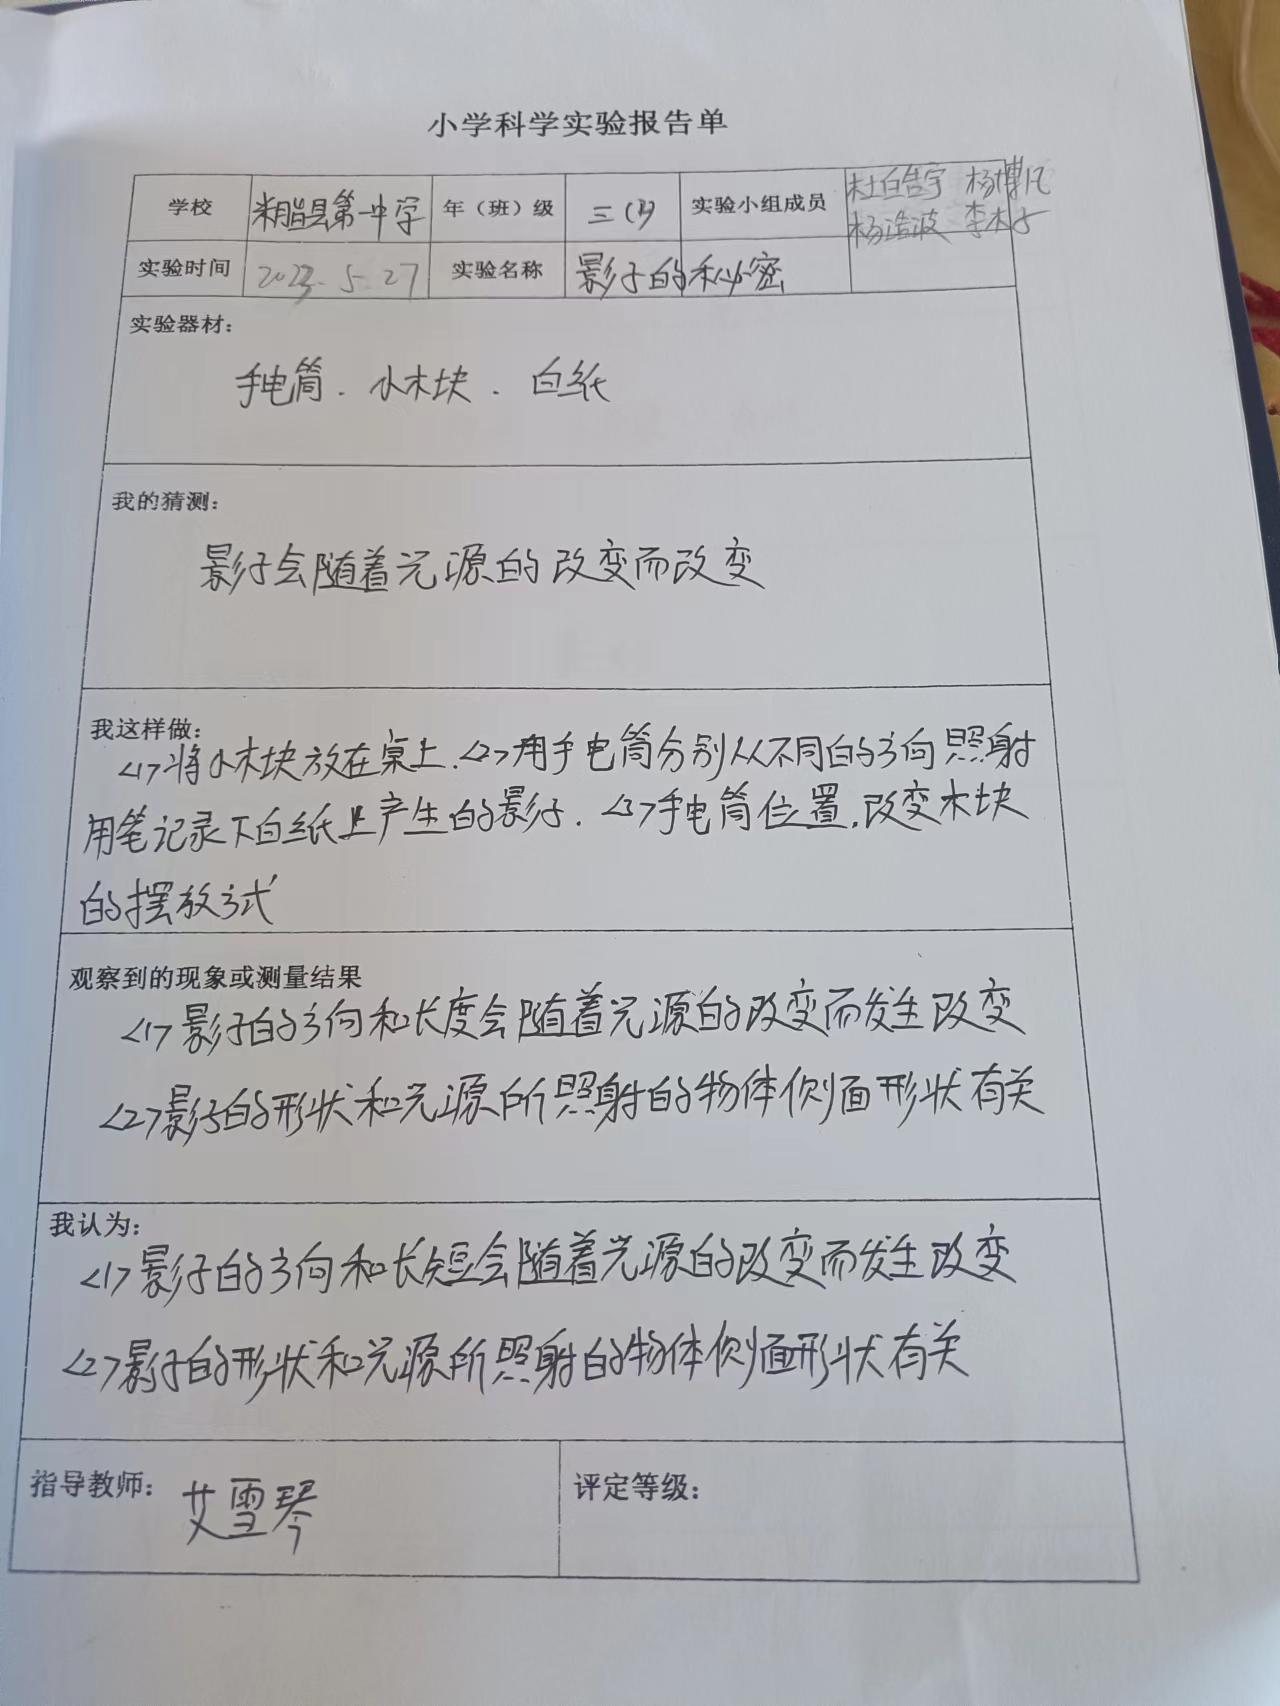 小学科学实验报告单
学校 米脂县第一中学 年（班）级 三(1) 实验小组成员 杜皓宇 杨博凡
杨浩波 李木子
实验时间 2023.5.27 实验名称 影子的秘密
实验器材：
手电筒. 小木块. 白纸
我的猜测：
影子会随着光源的改变而改变
我这样做：
<1>将小木块放在桌上.<2>用手电筒分别从不同的方向照射
用笔记录下白纸上产生的影子. <3>手电筒位置,改变木块
的摆放方式
观察到的现象或测量结果
<1>影子的方向和长度会随着光源的改变而发生改变
<2>影子的形状和光源所照射的物体侧面形状有关
我认为：
<1>影子的方向和长短会随着光源的改变而发生改变
<2>影子的形状和光源所照射的物体侧面形状有关
指导教师： 艾雪琴 评定等级：